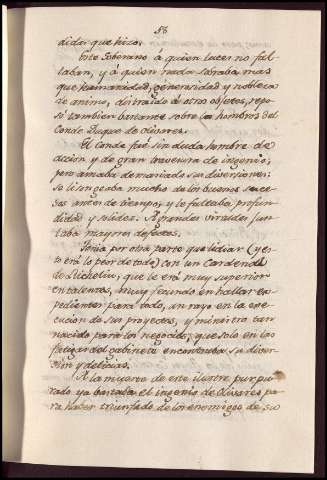 58
dida que hizo.
Este Soberano á quien luces no fal-
taban, y á quien nada sobraba mas
que humanidad, generosidad y nobleza
de animo, distraido de otros objetos, repo-
só tambien bastante sobre los hombros del
Conde Duque de Olivares.
El Conde fué sin duda hombre de
accion y de gran travesura de ingenio;
pero amaba demasiado sus diversiones:
se lisongeaba mucho de los buenos suce-
sos antes de tiempo, y le faltaba profun-
didad y solidez. A grandes virtudes jun-
taba mayores defectos.
Tenia por otra parte que lidiar (y es-
to era lo peor de todo) con un Cardenal
de Richelieu, que le era muy superior
en talentos, muy fecundo en hallar ex-
pedientes para todo, un rayo en la exe-
cucion de sus proyectos, y ministro tan
nacido para los negocios, que solo en las
fatigas del gabinete encontraba su diver-
sion y delicias.
A la muerte de este ilustre purpu-
rado ya bastaba el ingenio de Olivares pa-
ra hacer triunfado de los enemigos de su